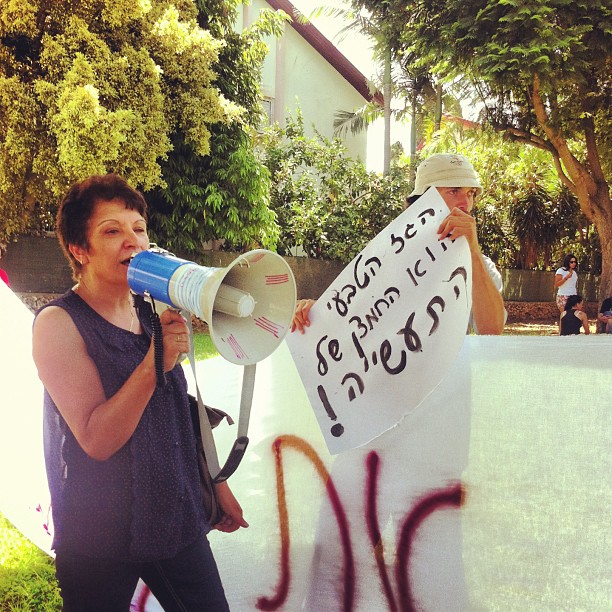 הגז הטבעי
הוא החמצן של
התעשיה!